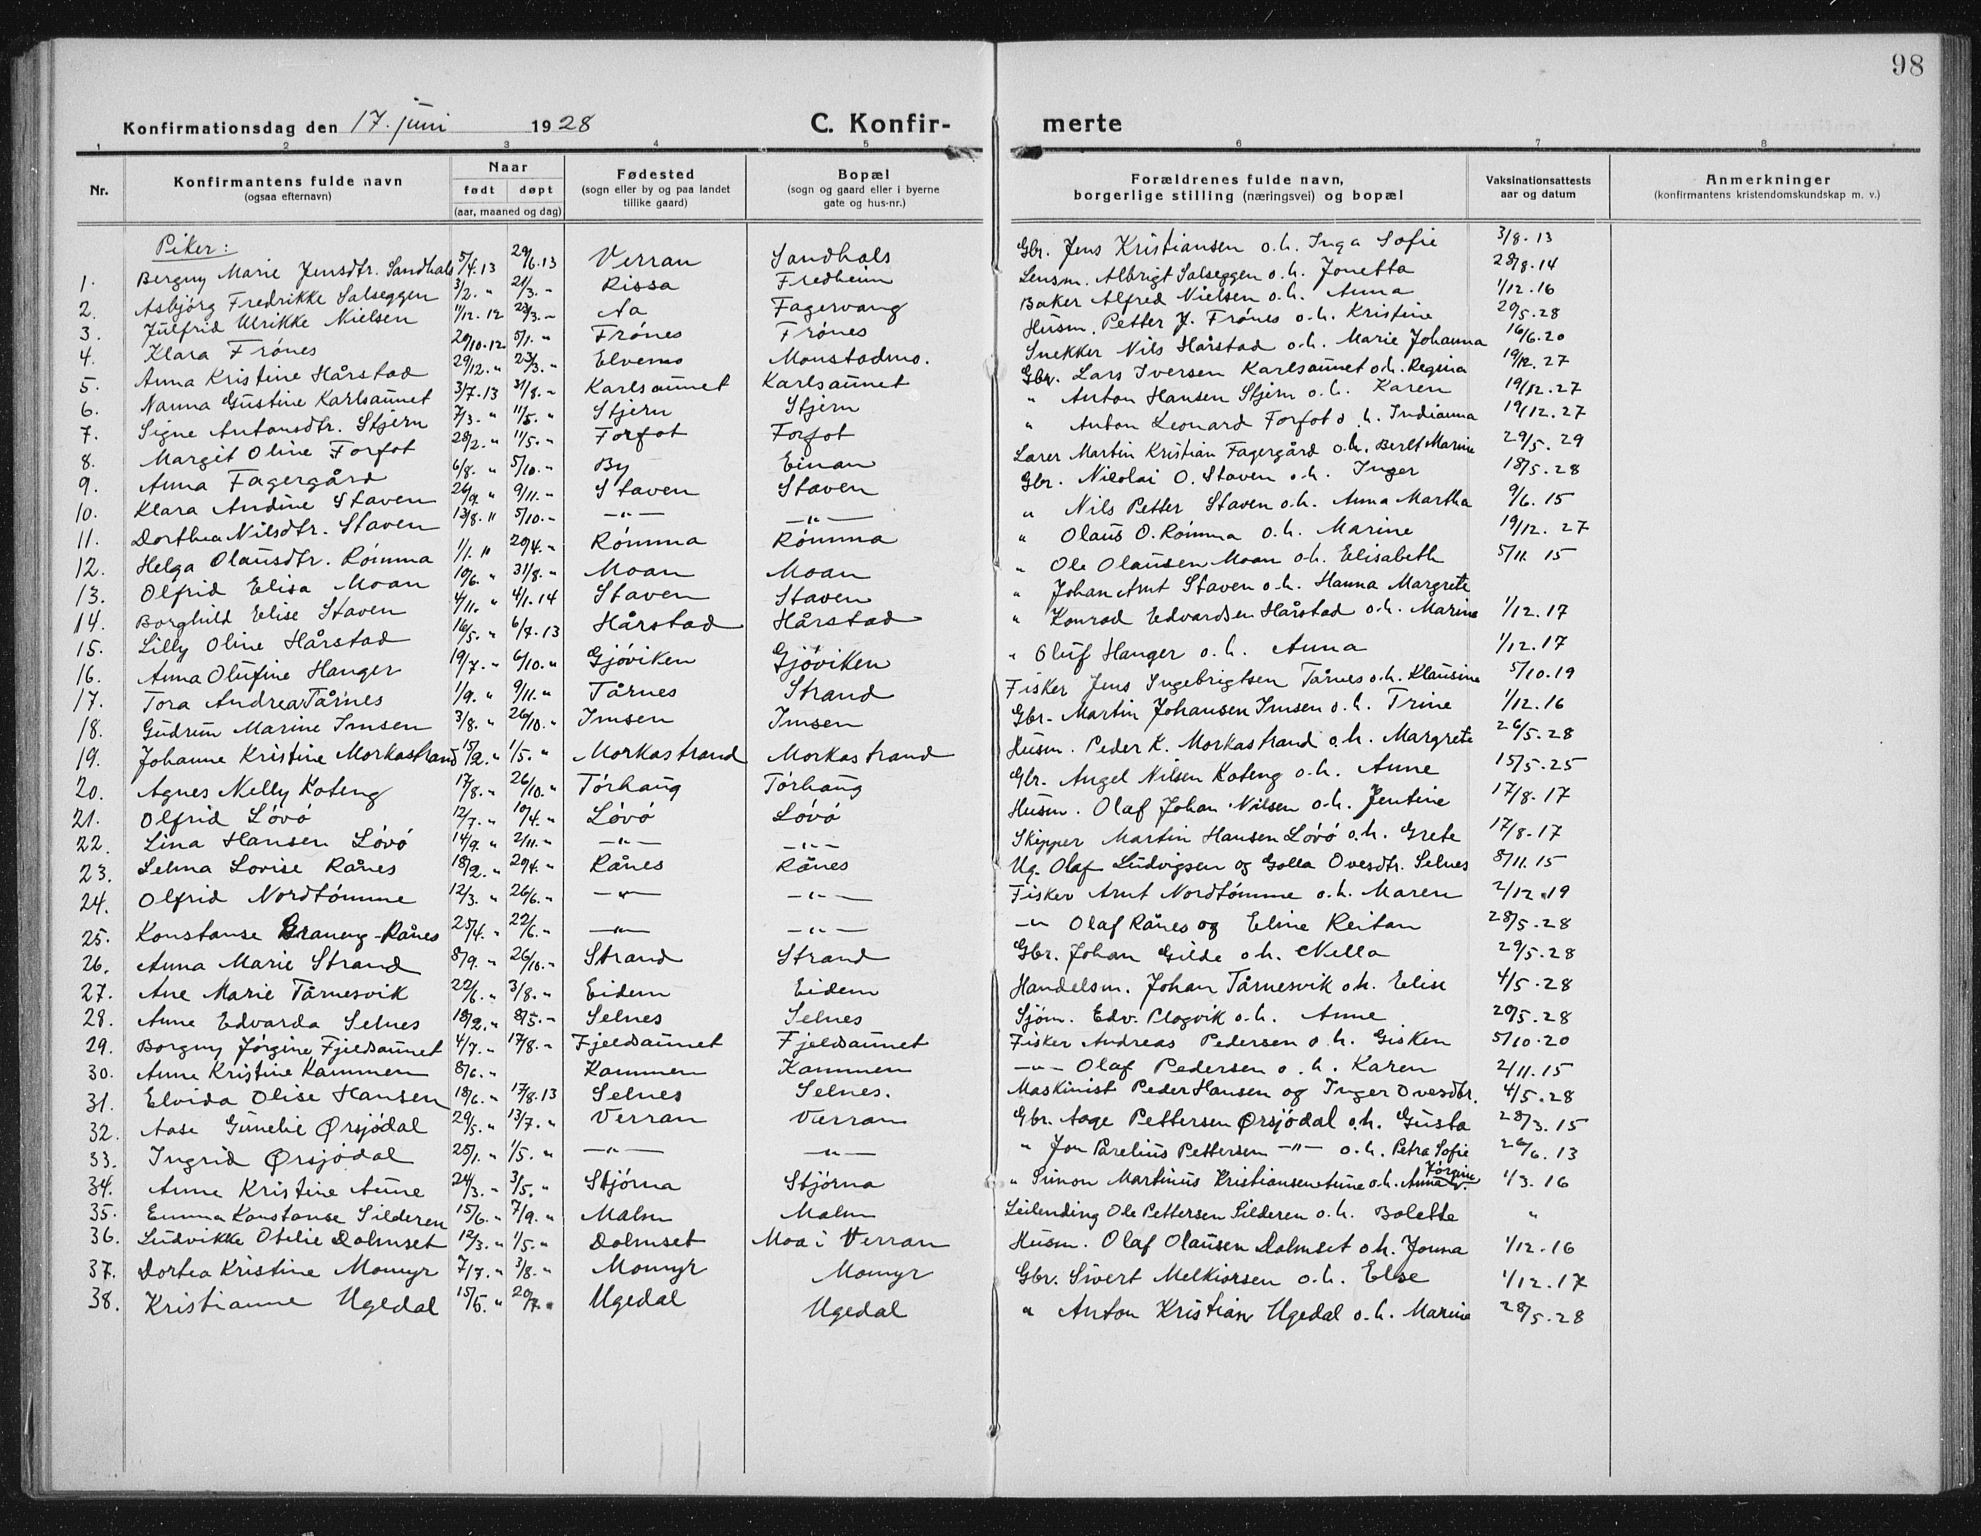 98
Konfirmationsdag den 17. juni 1928 C. Konfir- merte
1 2 3 4 5 6 7 8
Nr. Konfirmantens fulde navn (ogsaa efternavn) Naar født døpt (aar, maaned og dag) Fødested (sogn eller by og paa landet tillike gaard) Bopæl (sogn og gaard eller i byerne gate og hus-nr.) Forældrenes fulde navn, borgerlige stilling (næringsvei) og bopæl Vaksinationsattests aar og datum Anmerkninger (konfirmantens kristendomskundskap m. v.)
Piker:
1. Bergny Marie Jensdtr. Sandhals 5/4.13 29/6.13 Verran Sandhals Gbr. Jens Kristiansen o.h. Inga Sofie 3/8.13
2. Asbjörg Fredrikke Salseggen 3/2. " 21/3. - Rissa Fredheim Lensm. Albrigt Salseggen o.h. Jonetta 28/8.14
3. Julfrid Ulrikke Nielsen 1/12.12 23/3. - Aa Fagervang Baker Alfred Nielsen o.h. Anna 1/12.16
4. Klara Frönes 20/10.12 5/1. " Frönes Frönes Husm. Petter J. Frönes o.h. Kristine 29/5.28
5. Anna Kristine Hårstad 29/12. " 23/3. " Elvemo Monstadmo. Snekker Nils Hårstad o.h. Marie Johanna 16/6.20
6. Nanna Gustine Karlsaunet 3/7.13 31/8. - Karlsaunet Karlsaunet Gbr. Lars Iversen Karlsaunet o.h. Regina 19/12.27
7. Signe Antonsdtr. Stjern 7/3. " 11/5. " Stjern Stjern " Anton Hansen Stjern o.h. Karen 19/12.27
8. Margit Oline Forfot 28/2. " 11/5. - Forfot Forfot " Anton Leonard Forfot o.h. Indianna 19/12.27
9. Anna Fagergård 6/8. " 5/10. - By Einan Lærer Martin Kristian Fagergård o.h. Berit Marine 29/5.29
10. Klara Andine Staven 26/9. " 9/11. - Staven Staven Gbr. Nikolai O. Staven o.h. Inger 18/5.28
11. Dorthea Nilsdtr. Staven 13/8. " 5/10. - -"- -"- " Nils Petter Staven o.h. Anna Martha 9/6.15
12. Helga Olausdtr. Römma 1/1. " 20/4. - Römma Römma " Olaus O. Römma o.h. Marine 19/12.27
13. Olfrid Elisa Moan 10/6. " 31/8. - Moan Moan " Ole Olausen Moan o.h. Elisabeth 5/11 15
14. Borghild Elise Staven 4/11. " 4/1.14 Staven Staven " Johan Arnt Staven o.h. Hanna Margrete
15. Lilly Oline Hårstad 16/5. " 6/7.13 Hårstad Hårstad " Konrad Edvardsen Hårstad o.h. Marine 1/12.17
16. Anna Olufine Hanger 19/7. " 6/10. " Gjöviken Gjöviken " Oluf Hanger o.h. Anna 1/12.17
17. Tora Andrea Tårnes 1/9. " 9/11. " Tårnes Strand Fisker Jens Ingebrigtsen Tårnes o.h. Klausine 5/10.19
18. Gudrun Marine Imsen 3/8. " 26/10. - Imsen Imsen Gbr. Martin Johansen Imsen o.h. Trine 1/12.16
19. Johanne Kristine Morkastrand 15/2. " 1/5. " Morkastrand Morkastrand Husm. Peder K. Morkastrand o.h. Margrete 26/5.28
20. Agnes Nelly Koteng 17/8. - 26/10. - Törhaug Törhaug Gbr. Angel Nilsen Koteng o.h. Anne 15/5.25
21. Olfrid Lövö 12/7. " 10/4. - Lövö Lövö Husm. Olaf Johan Nilsen o.h. Jentine 17/8.17
22. Lina Hansen Lövö 14/9. " 2/11. - -"- -"- Skipper Martin Hansen Lövö o.h. Grete 17/8.17
23. Selma Lovise Rånes 18/2. " 20/4. - Rånes Rånes Ug. Olaf Ludvigsen og Golla Ovesdtr. Selnes 8/11.15
24. Olfrid Nordtömme 12/3. " 26/6. - -"- -"- Fisker Arnt Nordtömme o.h. Maren 2/12.19
25. Konstanse Graneng-Rånes 25/4. - 22/6. - -"- -"- -"- Olaf Rånes og Eline Reitan 28/5.28
26. Anna Marie Strand 8/9. - 26/10. - Strand Strand Gbr. Johan Gilde o.h. Nella 29/5.28
27. Ane Marie Tårnesvik 22/6. - 3/8. - Eidem Eidem Handelsm. Johan Tårnesvik o.h. Elise 4/5.28
28. Anne Edvarda Selnes 18/2. " 8/5. - Selnes Selnes Sjöm. Edv. Plogvik o.h. Anne 20/5.28
29. Borgny Jörgine Fjeldsaunet 4/7. - 17/8. - Fjeldsaunet Fjeldsaunet Fisker Andreas Pedersen o.h. Gisken 5/10.20
30. Anne Kristine Kammen 8/6. " Kammen Kammen -"- Olaf Pedersen o.h. Karen 2/11.15
31. Elvida Olise Hansen 18/6. - 17/8.13 Selnes Selnes. Maskinist Peder Hansen og Inger Ovesdtr. 4/5.28
32. Aase Gunelie Ørsjödal 29/5. " 13/7. " Verran Verran Gbr. Aage Pettersen Ørsjödal o.h. Gusta 28/3.15
33. Ingrid Ørsjödal 25/1. " 1/5. " -"- -"- " Jon Parelius Pettersen -"- o.h. Petra Sofie 26/6.13
34. Anne Kristine Aune 24/3. - 3/5. " Stjörna Stjörna " Simon Martinus Kristiansen Aune o.h. Anna Jörgine 1/3.16
35. Emma Konstanse Silderen 15/6. " 7/9. " Malm Malm Leilending Ole Pettersen Silderen o.h. Bolette "
36. Ludvikke Otelie Dolmset 12/3. " 1/5. " Dolmset Moa i Verran Husm. Olaf Olausen Dolmset o.h. Jonna 1/12.16
37. Dortea Kristine Momyr 7/7. " 3/8. " Momyr Momyr Gbr. Sivert Melkiorsen o.h. Else 1/12.17
38. Kristianne Ugedal 15/5. " 20/7. " Ugedal Ugedal " Anton Kristian Ugedal o.h. Marine 28/5.28